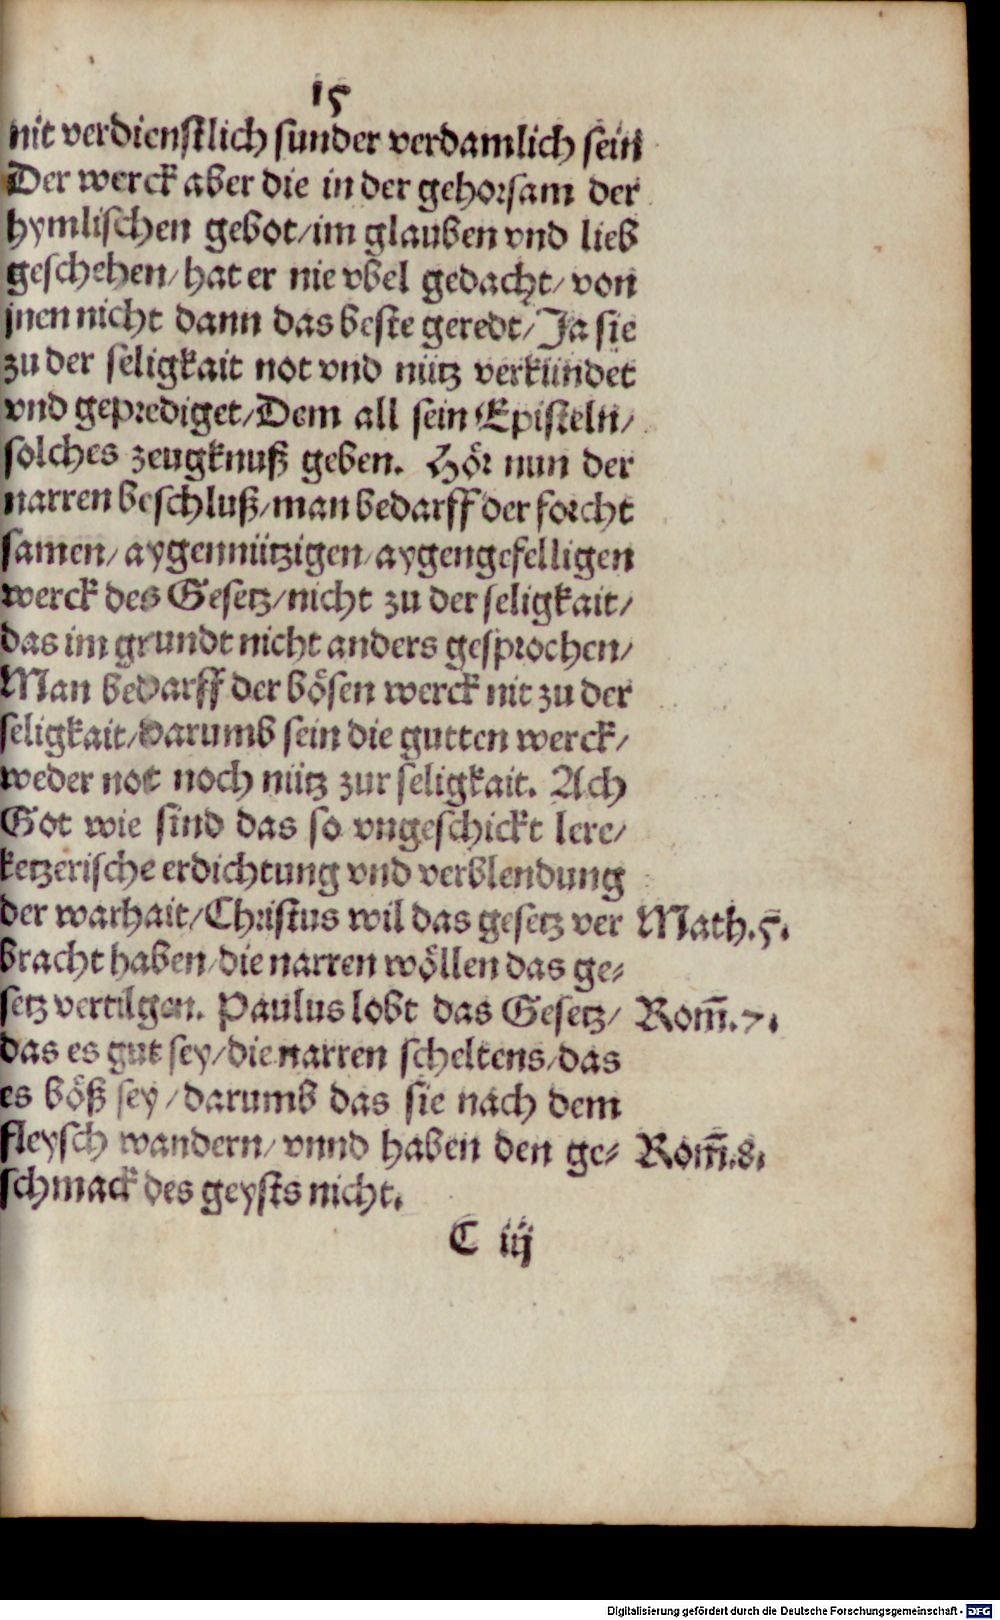 15
nit verdienstlich sunder verdamlich sein
Der werck aber die in der gehorsam der
hymlischen gebot/im glauben vnd lieb
geschehen/hat er nie vbel gedacht/von
jnen nicht dann das beste geredt/Ja sie
zu der seligkait not vnd nütz verkündet
vnd geprediget/Dem all sein Episteln/
solches zeugknuß geben. Hör nun der
narren beschluß/man bedarff der forcht
samen/aygennützigen/aygengefelligen
werck des Gesetz/nicht zu der seligkait/
das im grundt nicht anders gesprochen/
Man bedarff der bösen werck nit zu der
seligkait/darumb sein die gutten werck/
weder not noch nütz zur seligkait. Ach
Got wie sind das so vngeschickt lere/
ketzerische erdichtung vnd verblendung
der warhait/Christus wil das gesetz ver Math.5.
bracht haben/die narren wöllen das ge⸗
setz vertilgen. Paulus lobt das Gesetz/ Rom̃.7.
das es gut sey/die narren scheltens/das
es böß sey/darumb das sie nach dem
fleysch wandern/vnnd haben den ge⸗ Rom̃.8.
schmack des geysts nicht.
C iij
Digitalisierung gefördert durch die Deutsche Forschungsgemeinschaft - DFG